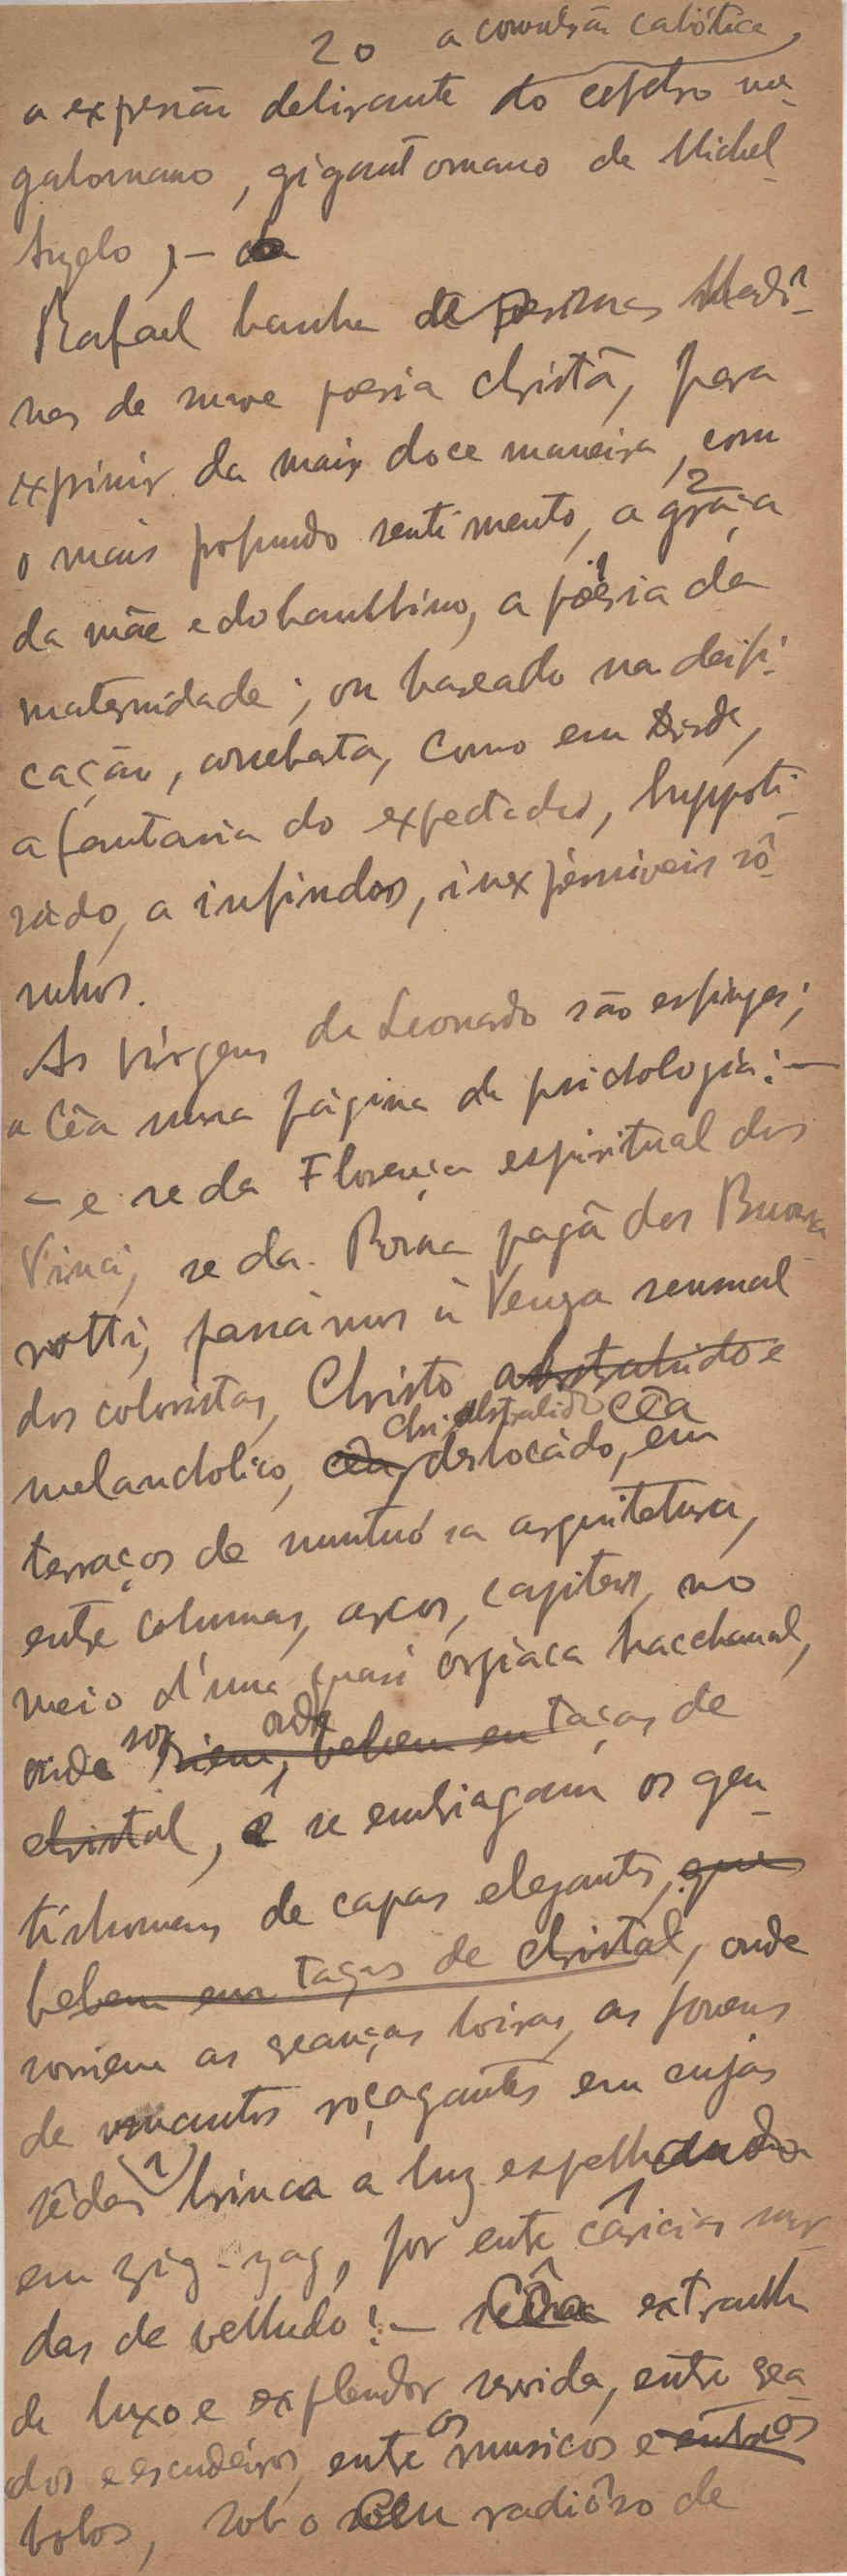 20 a convulsão cahótica,
a expressão delirante do cerebro me-
galomano, gigantomano de Michel
Angelo ;-
Rafael banha de Mado-
nas de suave poesia christã, para
exprimir da mais doce maneira, com
o mais profundo sentimento, a graça 2
da mãe e do bambino, a poesia da 1
maternidade; ou baseado na deifi-
cação, arrebata, como em
a fantasia do expectador, hypnoti-
zado, a infindos, inexprimiveis sô-
nhos.
As virgens de Leonardo são esfinges;
a Cêa uma página de psichologia: -
- e se da Florença espiritual dos
Vinci, se da Roma pagã dos Buona
rotti, passâmos à Veneza sensual
dos coloristas, Christo abstrahido e
Chr. abstrahido cêa
melancholico, cêa, deslocado, em
terraços de sumtuósa arquitetura,
entre columnas, arcos, capiteis, no
meio d'uma quasi orgiaca bacchanal,
onde riem, onde bebem em taças de
christal, e se embriagam os gen-
tishomens de capas elegantes, que
bebem em taças de christal, onde
sorriem as loiras, as jovens
de mantos roçagantes em cujas
sêdas brinca a luz espelhando
em zig-zag, por entre cáricias sur-
das de velludo! - Cêa extranha
de luxo e explendor servida, entre
dos e escudeiros, entre os musicos e entre os
bobos, sob o céu radiôso de